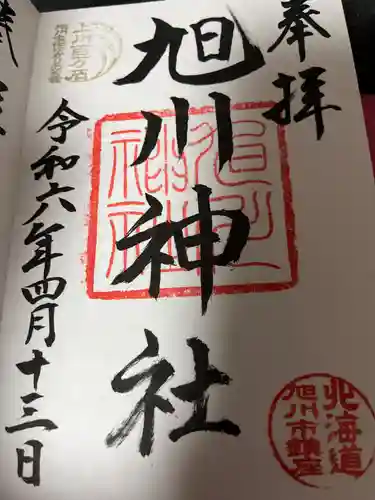 奉拝
旭川神社
令和六年四月十三日
旭川神社
北海道
旭川市鎮座